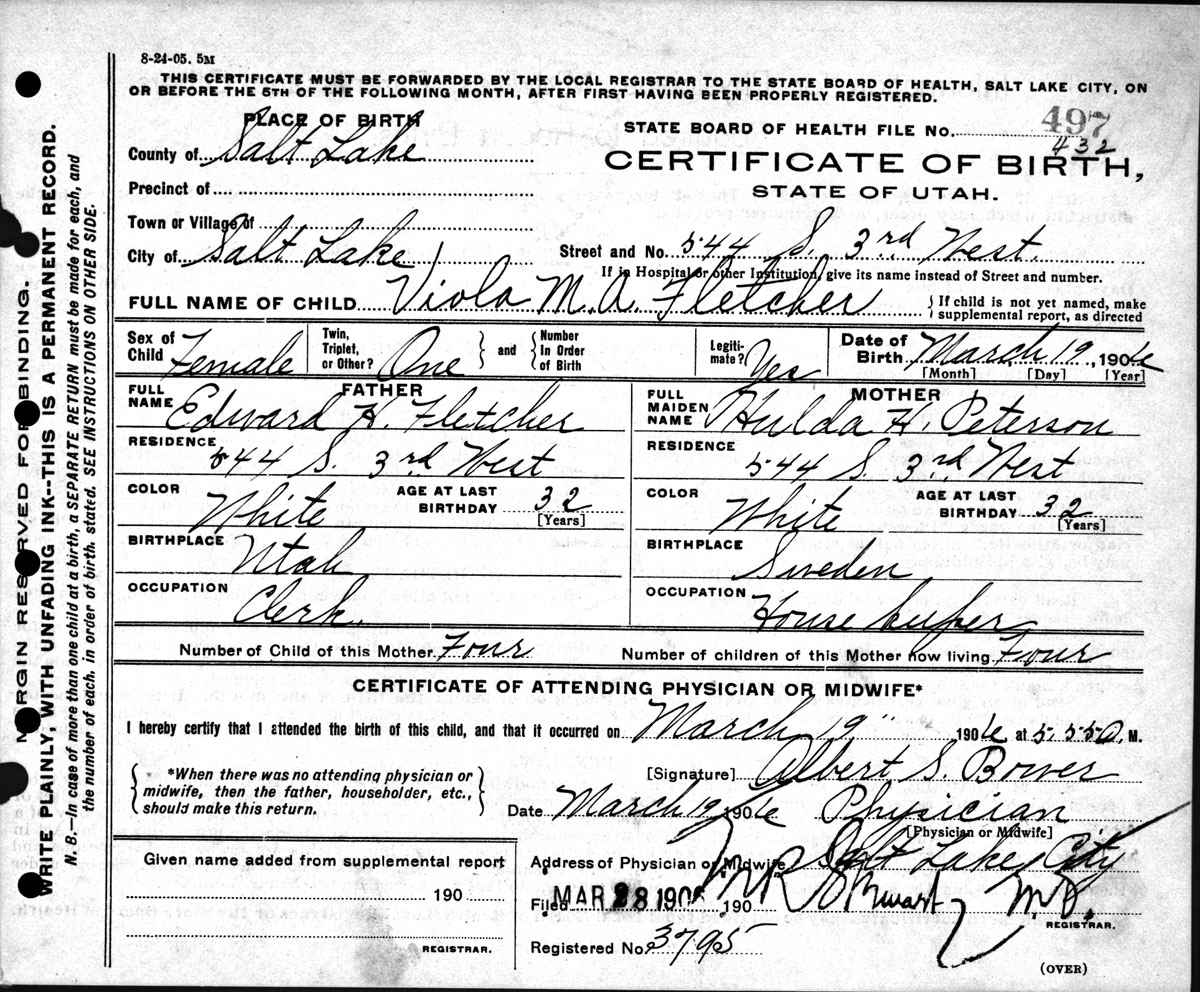 8-24-05. 5M
THIS CERTIFICATE MUST BE FORWARDED BY THE LOCAL REGISTRAR TO THE STATE BOARD OF HEALTH, SALT LAKE CITY, ON
OR BEFORE THE 5TH OF THE FOLLOWING MONTH, AFTER FIRST HAVING BEEN PROPERLY REGISTERED.
PLACE OF BIRTH
STATE BOARD OF HEALTH FILE No. 497
432
County of Salt Lake
CERTIFICATE OF BIRTH,
STATE OF UTAH.
Precinct of
Town or Village of
City of Salt Lake
Street and No. 544 S. 3rd West.
If in Hospital or other Institution, give its name instead of Street and number.
FULL NAME OF CHILD Viola M. A. Fletcher
If child is not yet named, make
supplemental report, as directed
Sex of Child Female
Twin, Triplet, or Other? One
and Number In Order of Birth
Legitimate? Yes
Date of Birth March 19, 1906
[Month] [Day] [Year]
FATHER
FULL NAME Edward H. Fletcher
RESIDENCE 544 S. 3rd West
COLOR White AGE AT LAST BIRTHDAY 32
[Years]
BIRTHPLACE Utah
OCCUPATION Clerk.
MOTHER
FULL MAIDEN NAME Hulda H. Peterson
RESIDENCE 544 S. 3rd West
COLOR White AGE AT LAST BIRTHDAY 32
[Years]
BIRTHPLACE Sweden
OCCUPATION House keeper
Number of Child of this Mother Four
Number of children of this Mother now living Four
CERTIFICATE OF ATTENDING PHYSICIAN OR MIDWIFE*
I hereby certify that I attended the birth of this child, and that it occurred on March 19" 1906 at 5.55 A. M.
*When there was no attending physician or
midwife, then the father, householder, etc.,
should make this return.
[Signature] Albert S. Bower
Date March 19 1906 Physician
[Physician or Midwife]
Given name added from supplemental report
190
REGISTRAR.
Address of Physician or Midwife Salt Lake City
Filed MAR 28 1906 190 M.D.
REGISTRAR.
Registered No. 3795
(OVER)
MARGIN RESERVED FOR BINDING.
WRITE PLAINLY, WITH UNFADING INK--THIS IS A PERMANENT RECORD.
N. B.—In case of more than one child at a birth, a SEPARATE RETURN must be made for each, and
the number of each, in order of birth, stated. SEE INSTRUCTIONS ON OTHER SIDE.